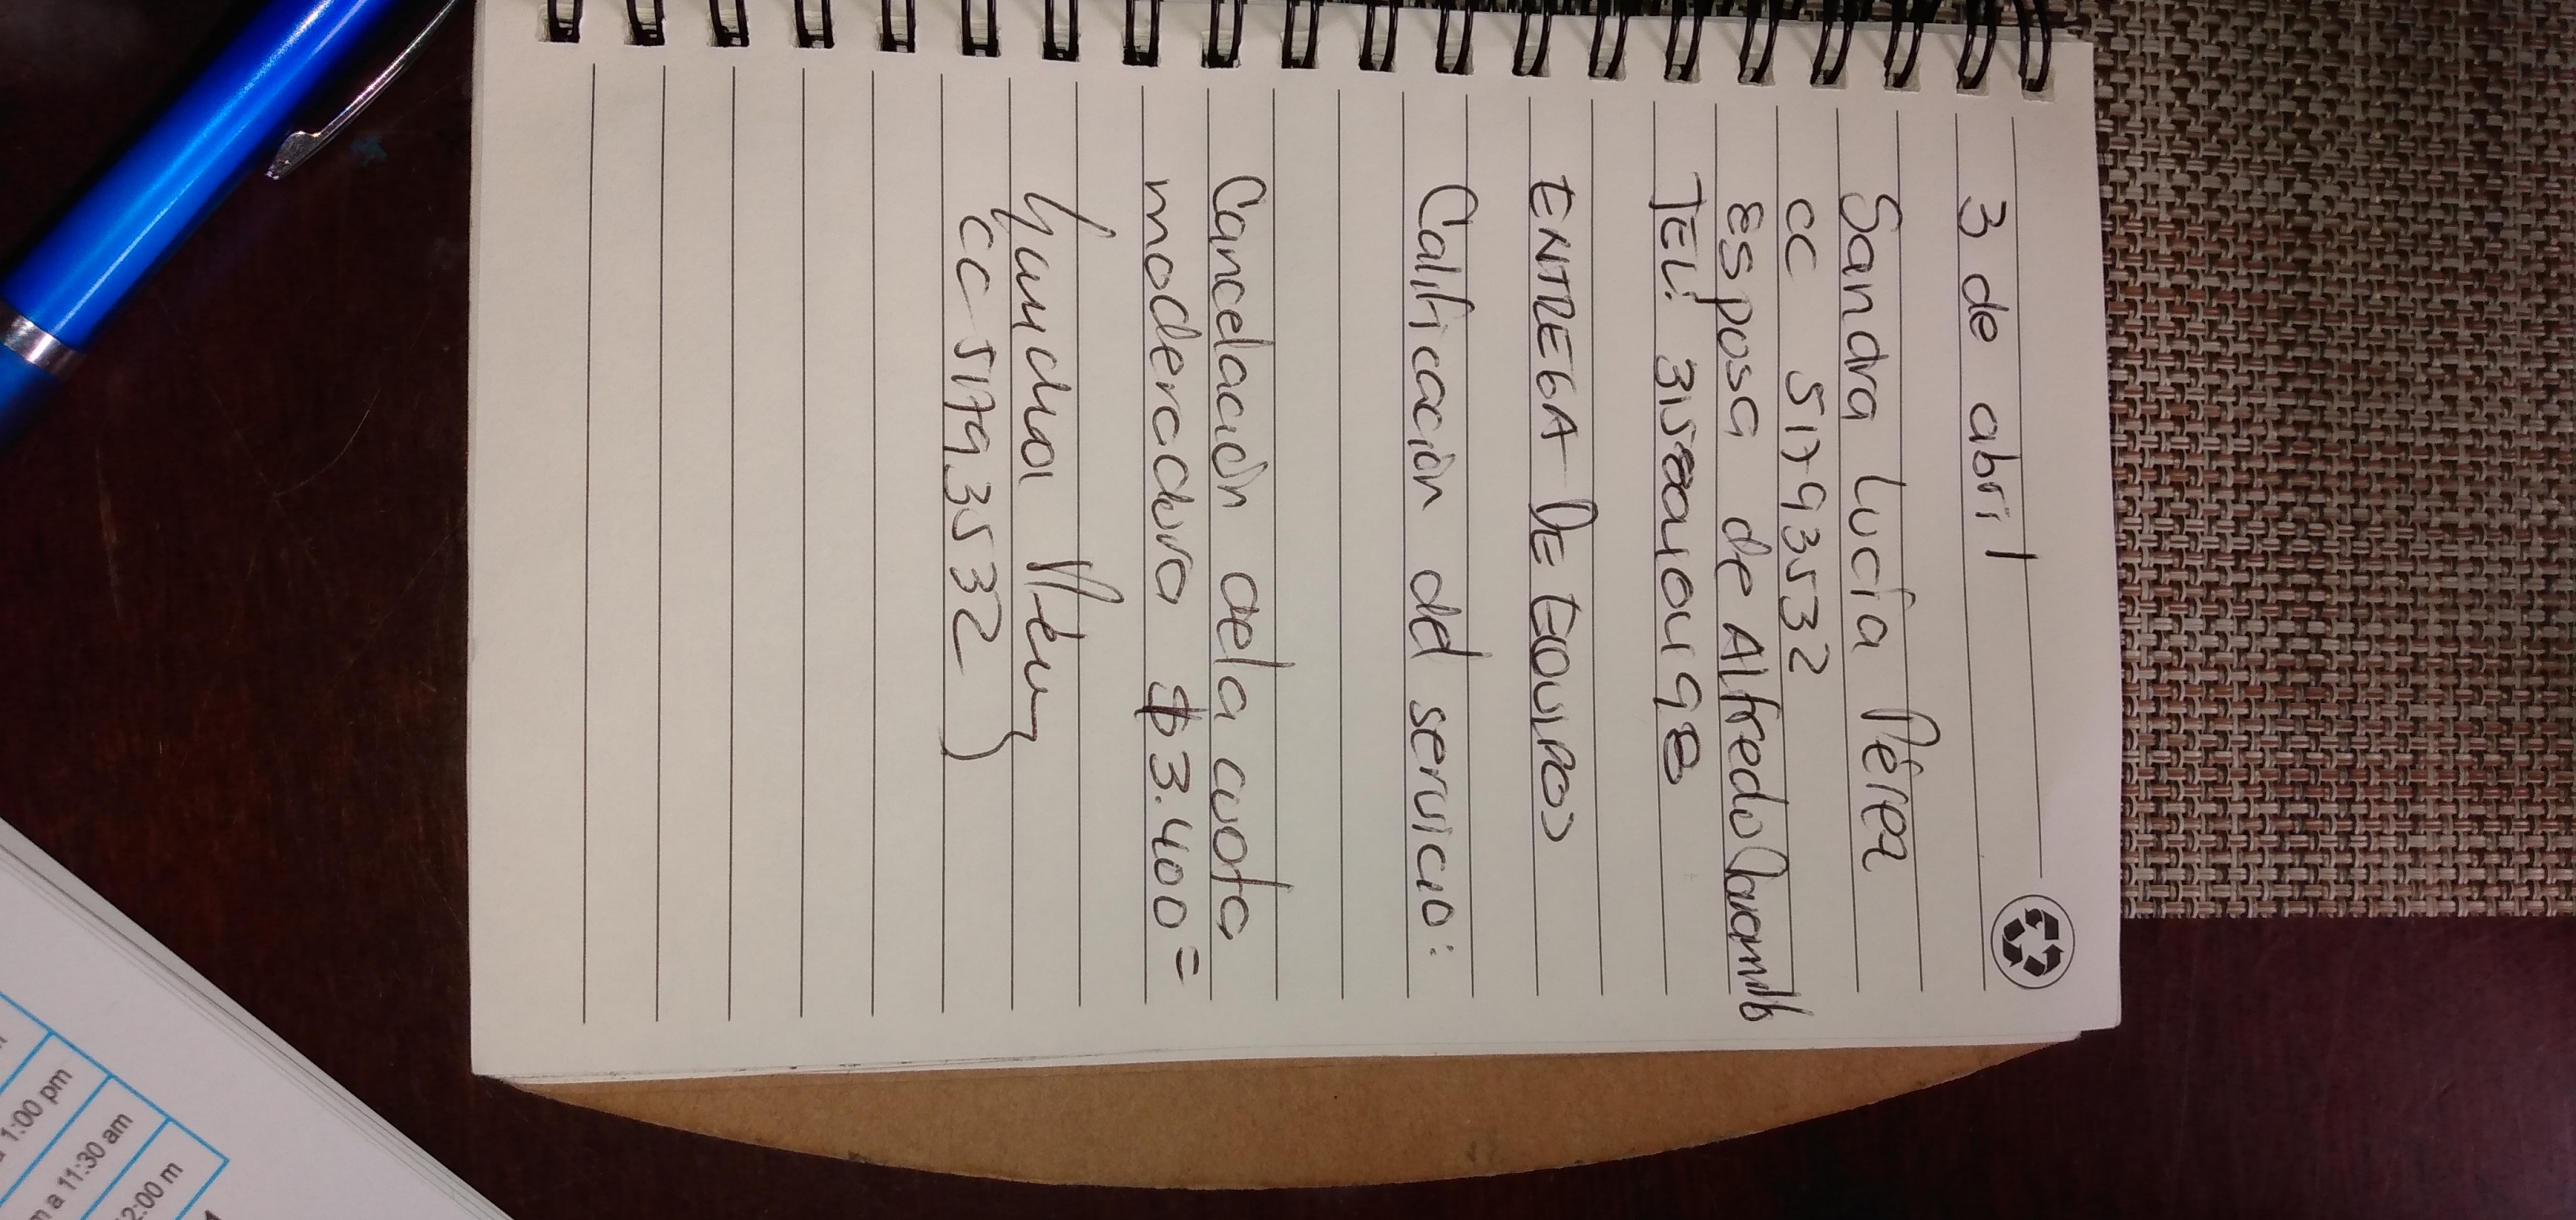 3 de abril
Sandra Lucía Pérez
CC 51793532
esposa de Alfredo Jaramillo
TEL: 3158041098
ENTREGA DE EQUIPOS
Calificación del servicio:
Cancelación de la cuota
moderadora $3.400=
Sandra
CC 51793532
1:00 pm
m a 11:30 am
2:00 m